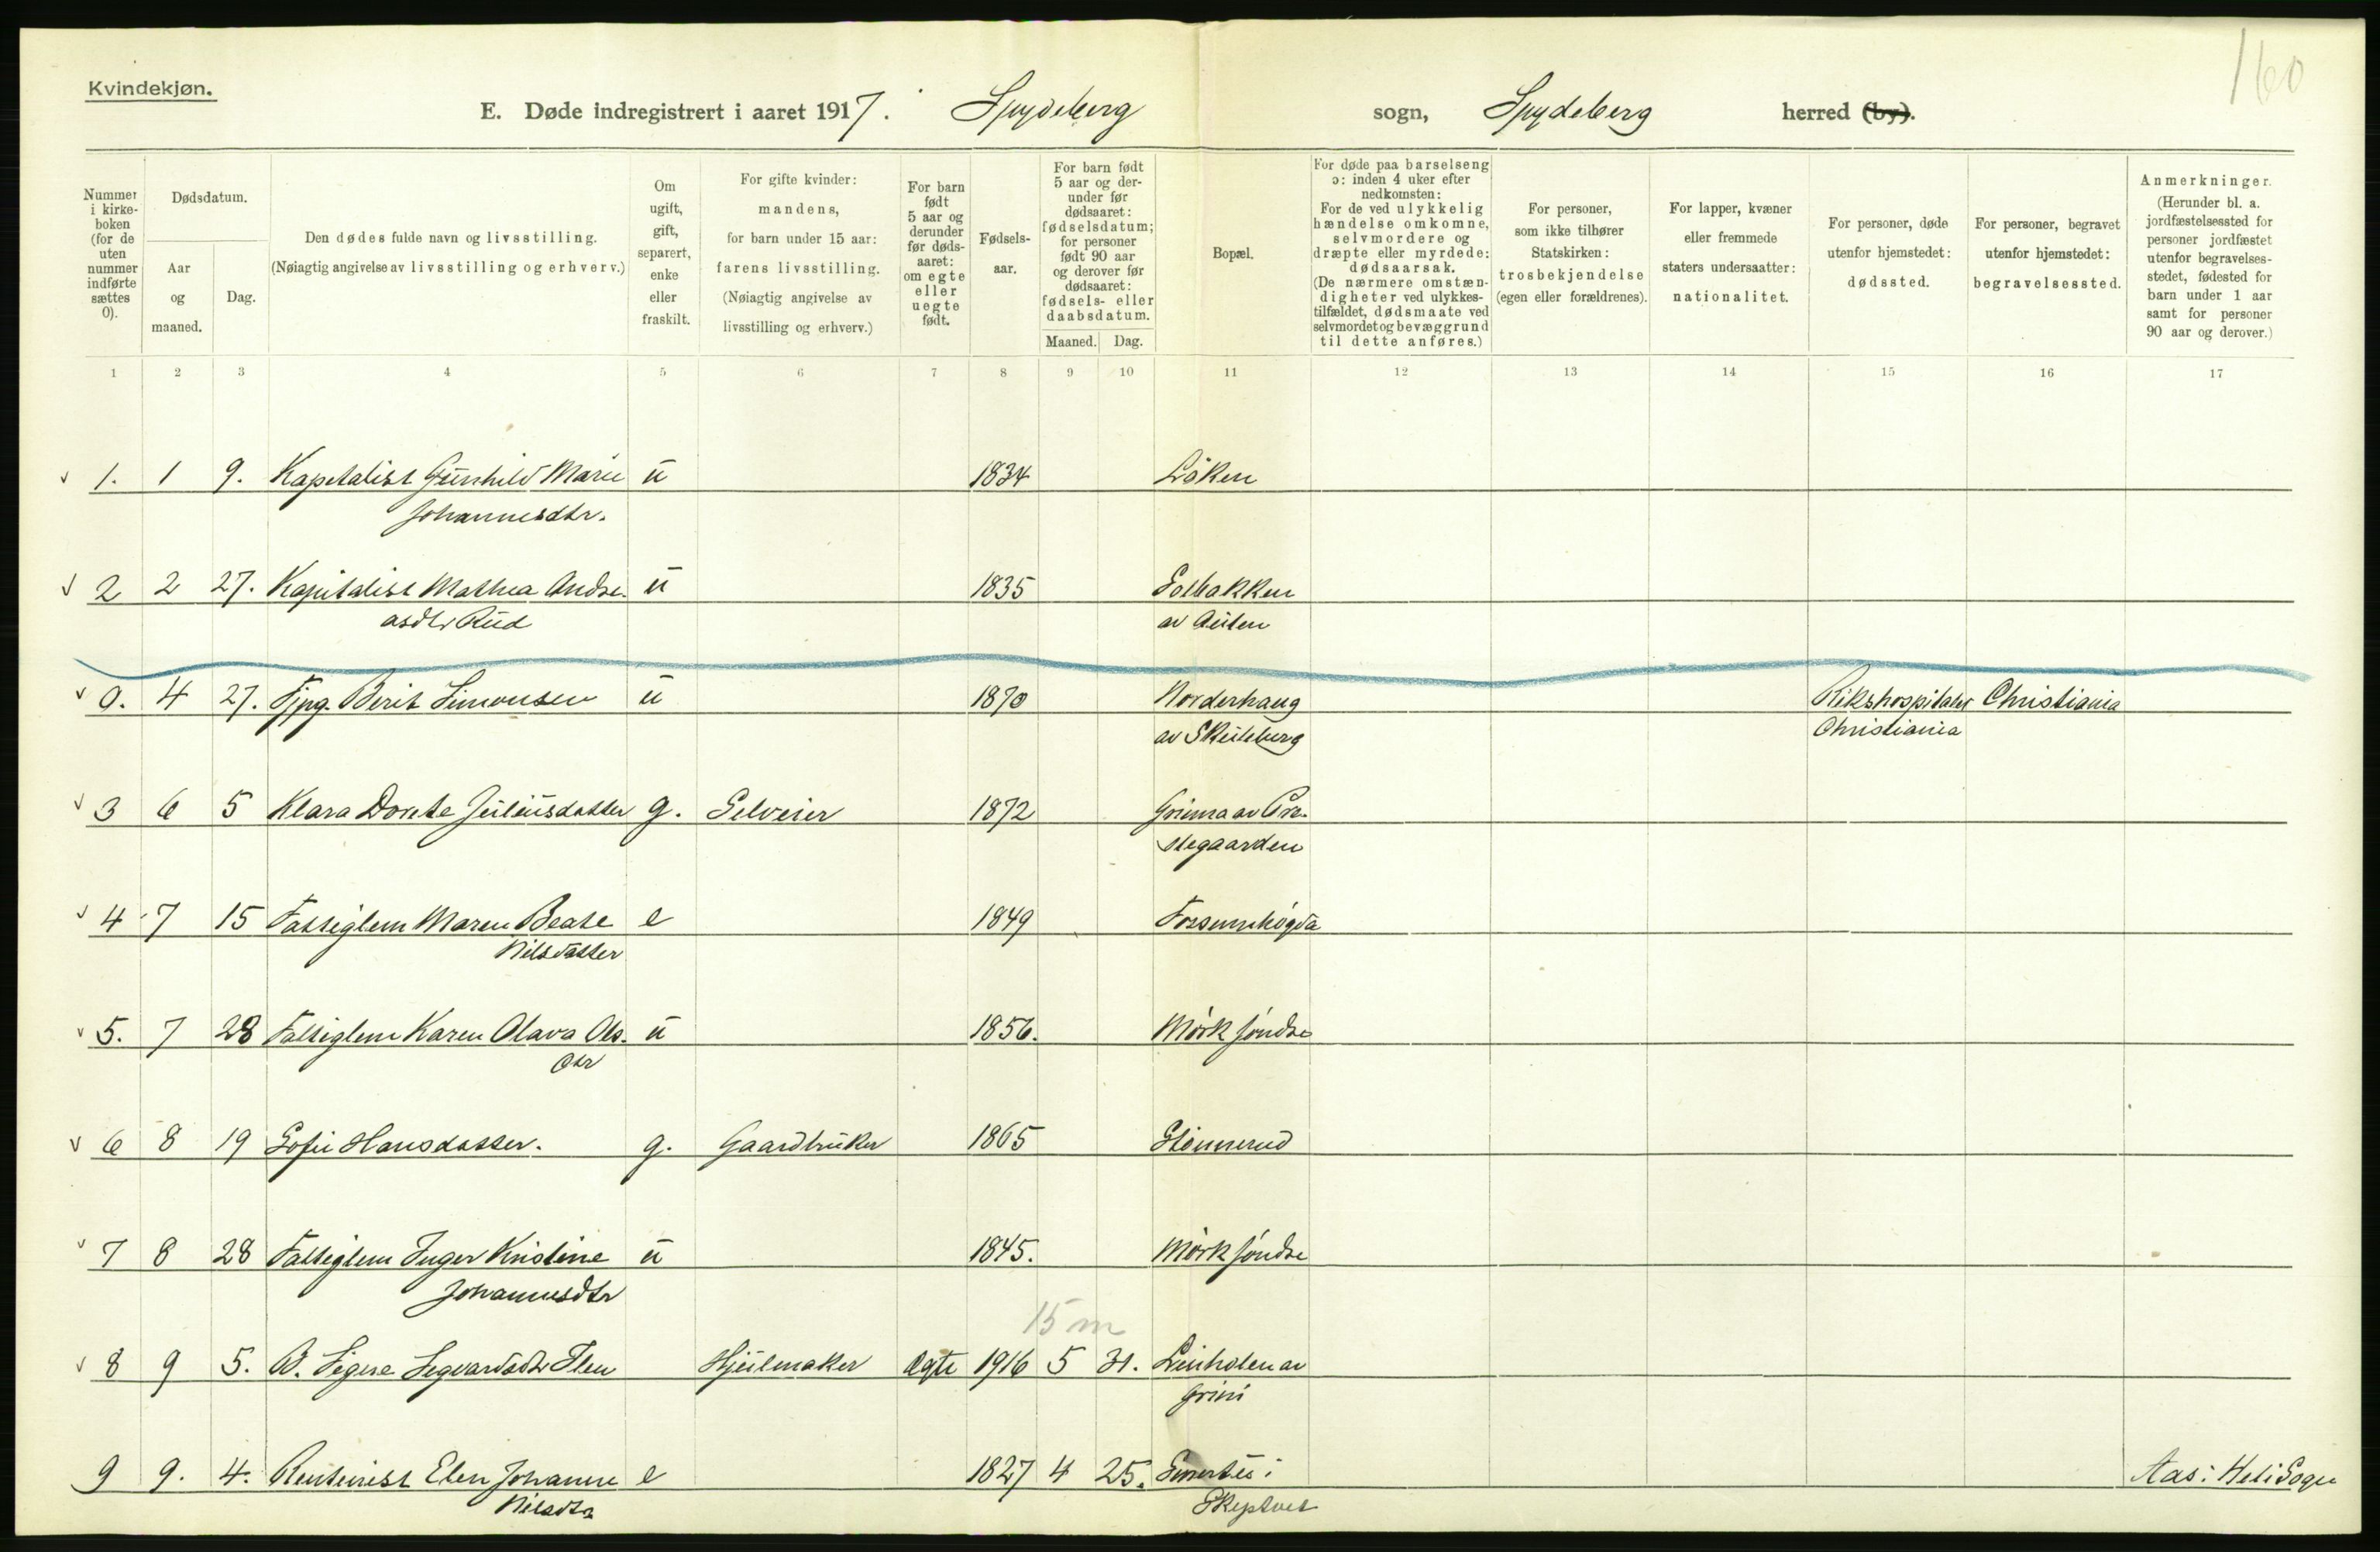 160
Kvindekjøn.
E. Døde indregistrert i aaret 1917. Spydeberg sogn, Spydeberg herred (by).
Nummer i kirke- boken (for de uten nummer indførte sættes 0).
Dødsdatum.
Aar og maaned.
Dag.
Den dødes fulde navn og livsstilling.
(Nøiagtig angivelse av livsstilling og erhverv.)
Om ugift, gift, separert, enke eller fraskilt.
For gifte kvinder: mandens, for barn under 15 aar: farens livsstilling. (Nøiagtig angivelse av livsstilling og erhverv.)
For barn født 5 aar og derunder før døds- aaret: om egte eller uegte født.
Fødsels- aar.
For barn født 5 aar og der- under før dødsaaret: fødselsdatum; for personer født 90 aar og derover før dødsaaret: fødsels- eller daabsdatum.
Maaned. Dag.
Bopæl.
For døde paa barselseng ɔ: inden 4 uker efter nedkomsten: For de ved ulykkelig hændelse omkomne, selvmordere og dræpte eller myrdede: dødsaarsak. (De nærmere omstæn- digheter ved ulykkes- tilfældet, dødsmaate ved selvmordet og bevæggrund til dette anføres.)
For personer, som ikke tilhører Statskirken: trosbekjendelse (egen eller forældrenes).
For lapper, kvæner eller fremmede staters undersaatter: nationalitet.
For personer, døde utenfor hjemstedet: dødssted.
For personer, begravet utenfor hjemstedet: begravelsessted.
Anmerkninger. (Herunder bl. a. jordfæstelsessted for personer jordfæstet utenfor begravelses- stedet, fødested for barn under 1 aar samt for personer 90 aar og derover.)
1 2 3 4 5 6 7 8 9 10 11 12 13 14 15 16 17
1. 1 9. Kapitalist Gunhild Marie u 1834 Løken
Johannesdtr.
2 2 27. Kapitalist Mathea Andre- u 1835 Solbakken
asdtr Rud av Auten
0. 4 27. Fjpg. Berit Simonsen u 1870 Norderhaug Rikshospitalet Christiania
av Skuleberg Christiania
3 6 5 Klara Dorete Juliusdatter g. Selveier 1872 Grinna av Pre-
stegaarden
4 7 15 Fattiglem Maren Beate e 1849 Fossumhøgda
Nilsdatter
5. 7 28 Fattiglem Karen Olava Ols- u 1856. Mørk søndre
dtr
6 8 19 Sofie Hansdatter. g. Gaardbruker 1865
7 8 28 Fattiglem Inger Kristine u 1845. Mørk søndre
Johannesdtr
15 m
8 9 5. B. Signe Sigvardsdtr Hjulmaker egte 1916 5 31. av
Grini
9 9. 4. Rentenist Elen Johanne e 1827 4 25. i Aas i Heli Sogn
Nilsdtr Skiptvet